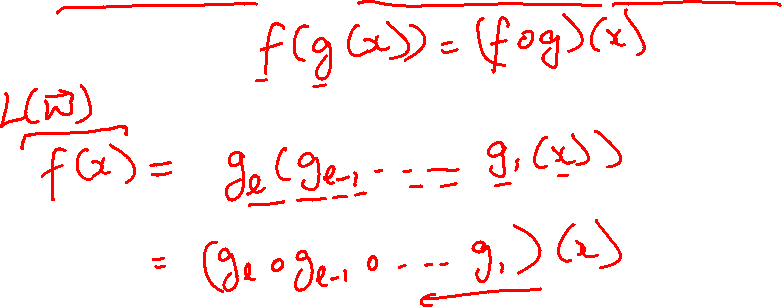 f(g(x)) = (f∘g)(x)
L(w⃗)
f(x) = gₗ(gₗ₋₁ ---- g₁(x))
= (gₗ∘gₗ₋₁∘---- g₁)(x)